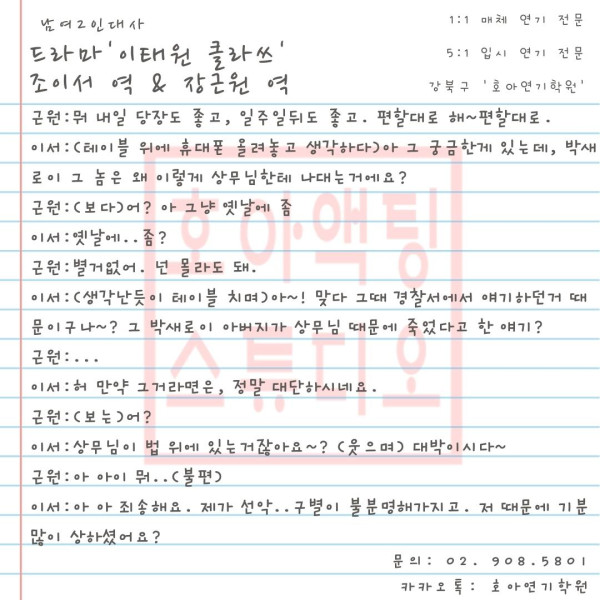 남여2인대사
1:1 매체 연기 전문
드라마 '이태원 클라쓰'
5:1 입시 연기 전문
조이서 역 & 장근원 역
강북구 '호아연기학원'
근원:뭐 내일 당장도 좋고, 일주일뒤도 좋고. 편할대로 해~편할대로.
이서:(테이블 위에 휴대폰 올려놓고 생각하다)아 그 궁금한게 있는데, 박새
로이 그 놈은 왜 이렇게 상무님한테 나대는거에요?
근원:(보다)어? 아 그냥 옛날에 좀
이서:옛날에..좀?
근원:별거없어. 넌 몰라도 돼.
이서:(생각난듯이 테이블 치며)아~! 맞다 그때 경찰서에서 얘기하던거 때
문이구나~? 그 박새로이 아버지가 상무님 때문에 죽었다고 한 얘기?
근원:...
이서:허 만약 그거라면은, 정말 대단하시네요.
근원:(보는)어?
이서:상무님이 법 위에 있는거잖아요~? (웃으며) 대박이시다~
근원:아 아이 뭐..(불편)
이서:아 아 죄송해요. 제가 선악..구별이 불분명해가지고. 저 때문에 기분
많이 상하셨어요?
문의: 02. 908.5801
카카오톡: 호아연기학원
호아액팅
스튜디오